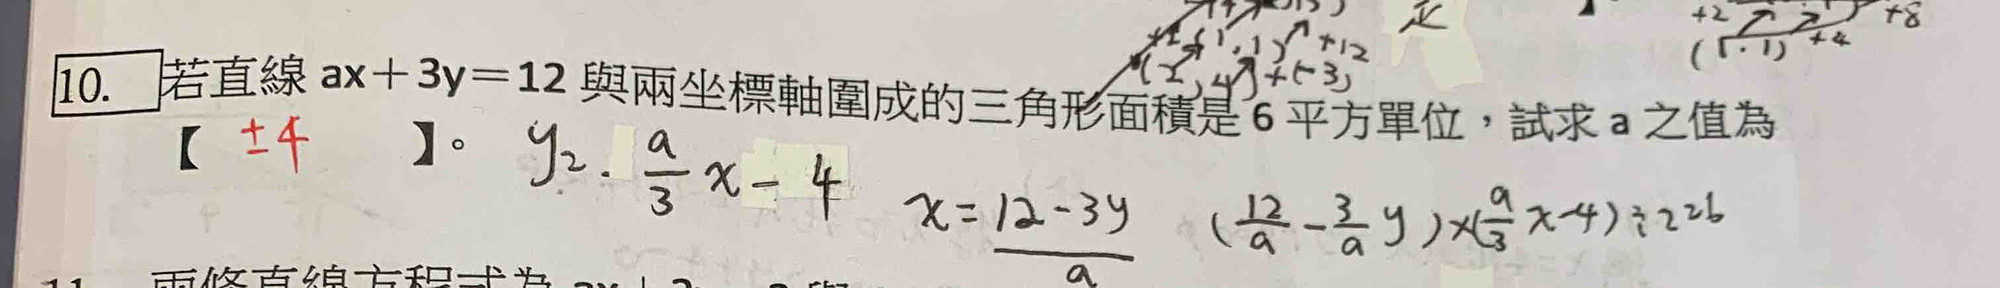 +2 +8
(1,1) +4
(1,1) +12
(-2,4) +(-3)
10. 若直線 ax+3y=12 與兩坐標軸圍成的三角形面積是 6 平方單位，試求 a 之值為
【 ±4 】。
y=-a/3 x-4
x=12-3y/a (12/a-3/a y)×(a/3 x-4)÷2=6
兩條直線方程式為